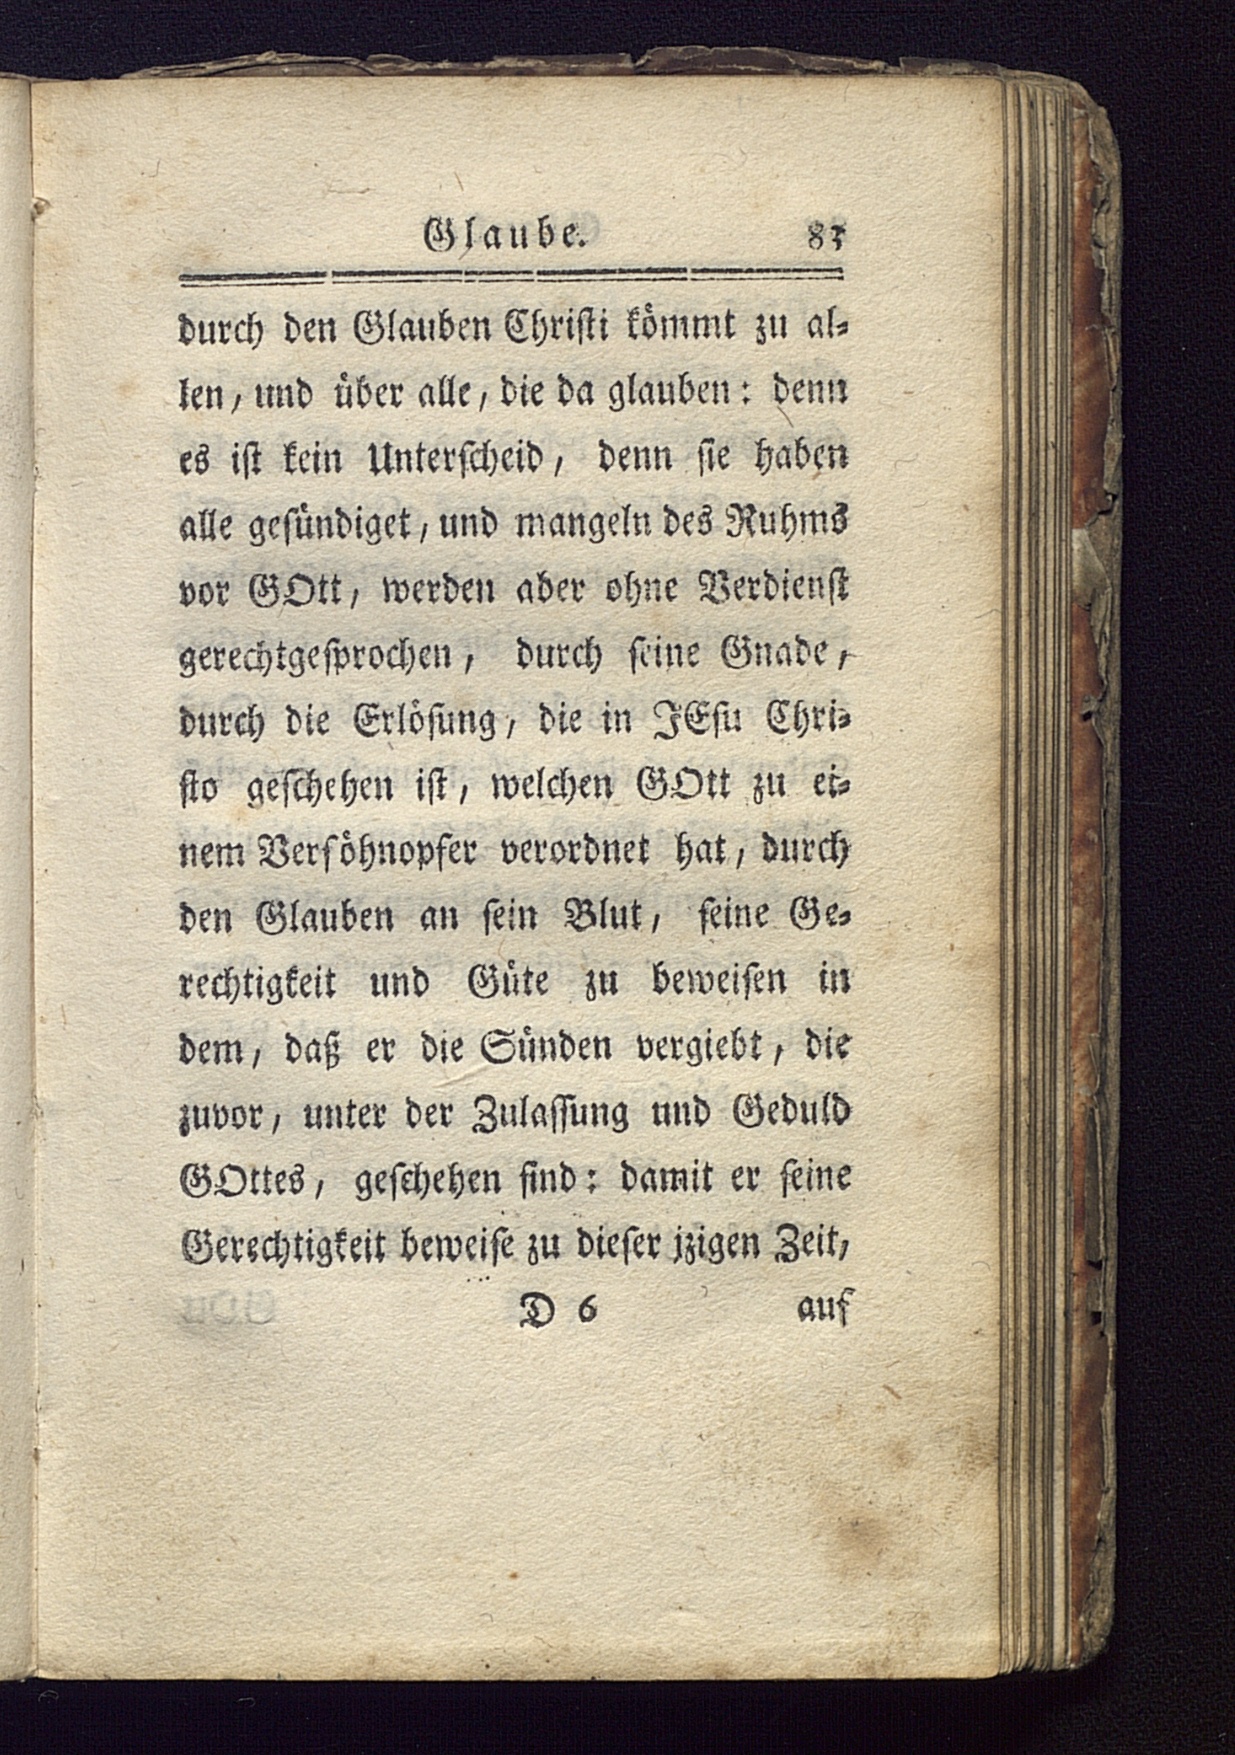 Glaube. 83
durch den Glauben Christi kömmt zu al⸗
len, und über alle, die da glauben: denn
es ist kein Unterscheid, denn sie haben
alle gesündiget, und mangeln des Ruhms
vor GOtt, werden aber ohne Verdienst
gerechtgesprochen, durch seine Gnade,
durch die Erlösung, die in JEsu Chri⸗
sto geschehen ist, welchen GOtt zu ei⸗
nem Versöhnopfer verordnet hat, durch
den Glauben an sein Blut, seine Ge⸗
rechtigkeit und Güte zu beweisen in
dem, daß er die Sünden vergiebt, die
zuvor, unter der Zulassung und Geduld
GOttes, geschehen sind: damit er seine
Gerechtigkeit beweise zu dieser jzigen Zeit,
D 6 auf